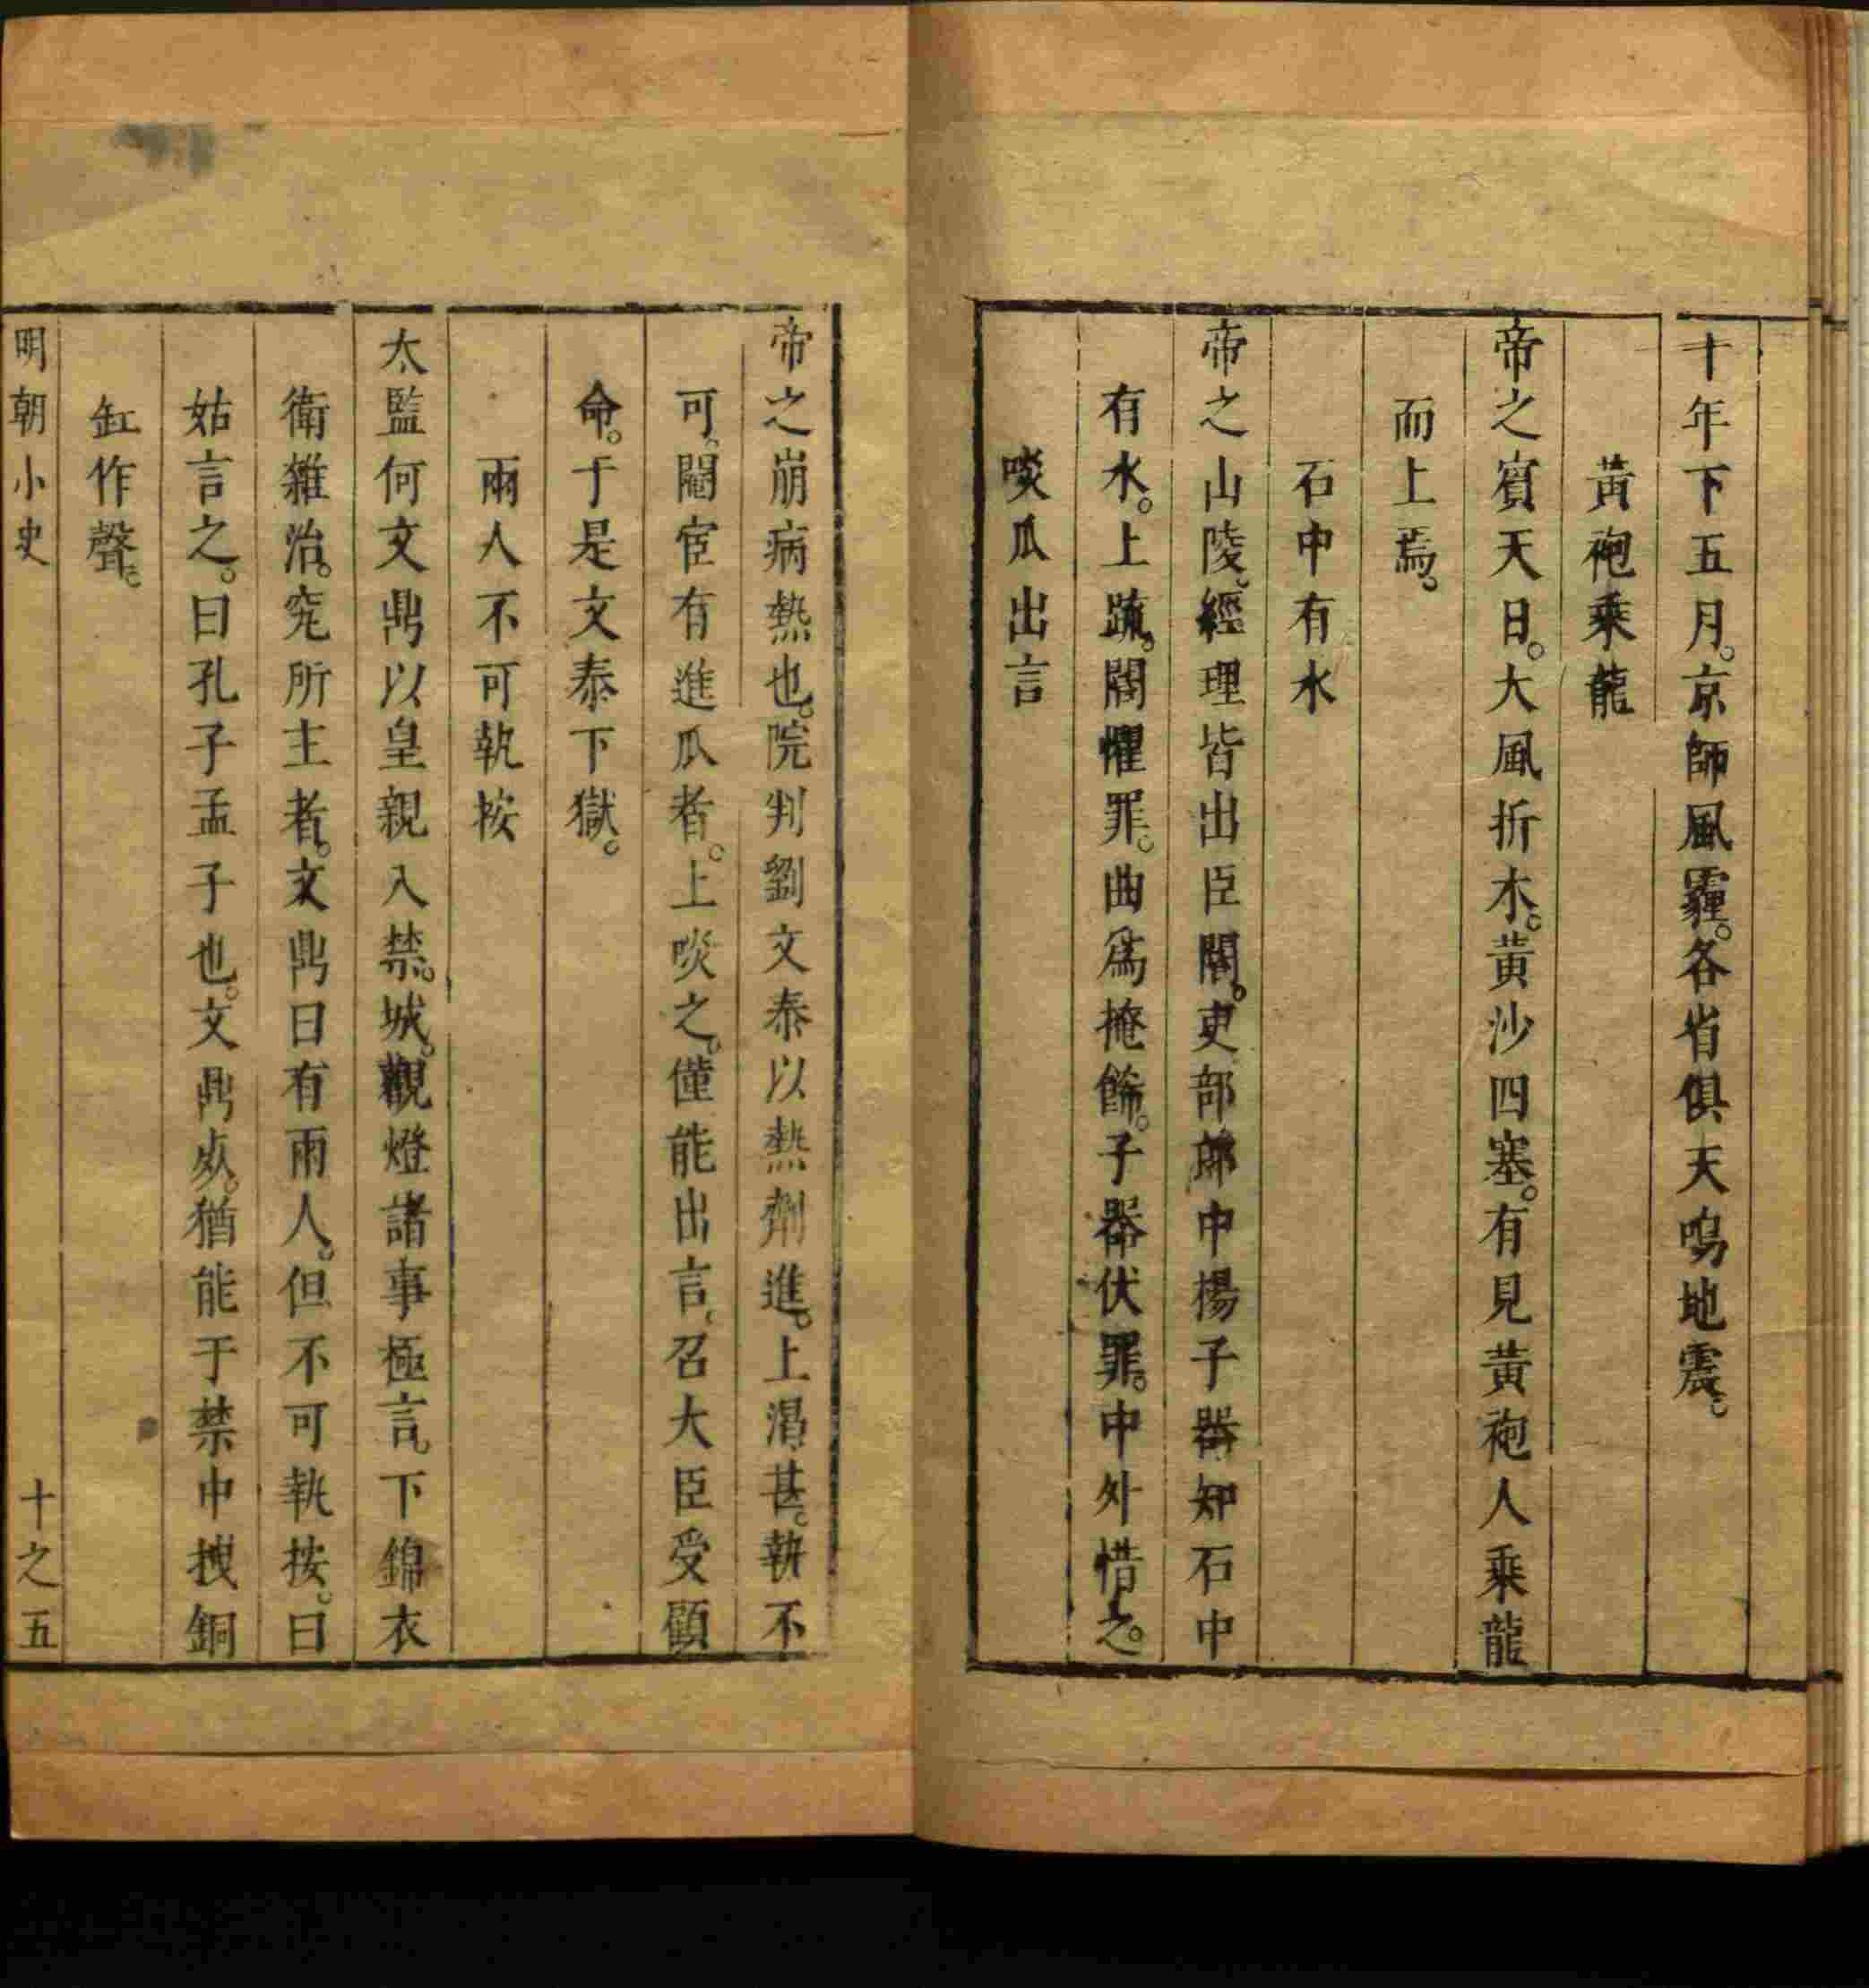 十年下五月。京師風霾。各省俱天鳴地震。
黃袍乘龍
帝之賓天日。大風折木。黃沙四塞。有見黃袍人乘龍
而上焉。
石中有水
帝之山陵。經理皆出臣閣。吏部郎中楊子器知石中
有水。上疏。閣懼罪。曲爲掩飾。子器伏罪。中外惜之。
啖瓜出言
帝之崩病熱也。院判劉文泰以熱劑進。上渴甚。執不
可。閹宦有進瓜者。上啖之。僅能出言。召大臣受顧
命。于是文泰下獄。
兩人不可執按
太監何文鼎以皇親入禁。城。觀燈諸事極言。下錦衣
衛雜治。究所主者。文鼎曰有兩人。但不可執按。曰
姑言之。曰孔子孟子也。文鼎死。猶能于禁中拽銅
缸作聲。
明朝小史
十之五